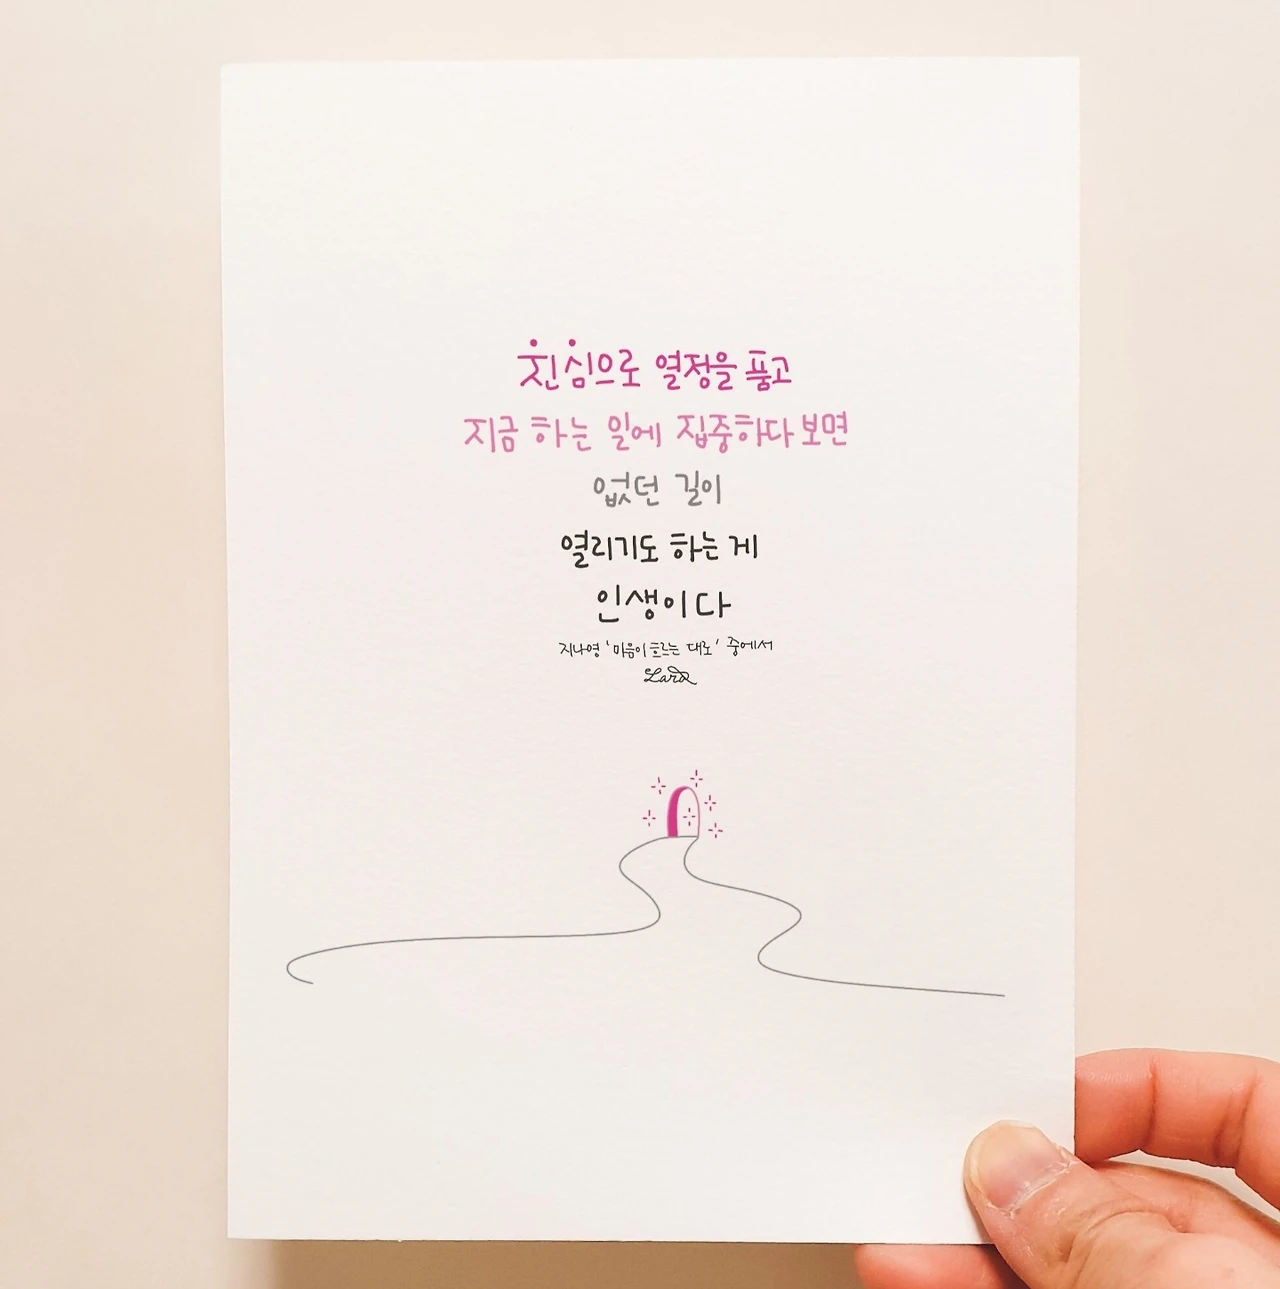 진심으로 열정을 품고
지금 하는 일에 집중하다 보면
없던 길이
열리기도 하는 게
인생이다
지나영 '마음이 흐르는 대로' 중에서
Lara